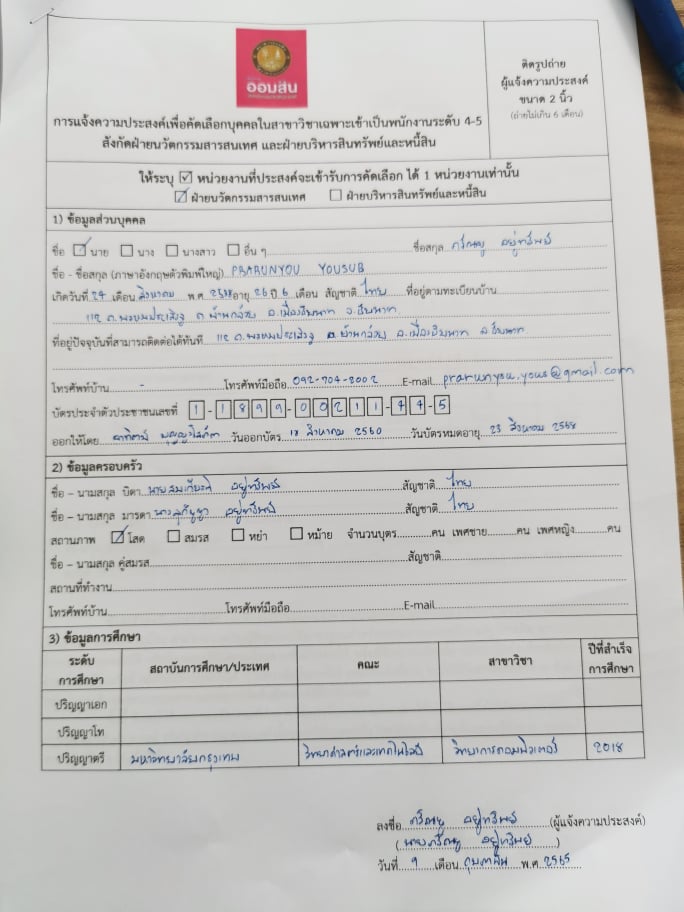 ออมสิน
ติดรูปถ่าย
ผู้แจ้งความประสงค์
ขนาด 2 นิ้ว
(ถ่ายไม่เกิน 6 เดือน)
การแจ้งความประสงค์เพื่อคัดเลือกบุคคลในสาขาวิชาเฉพาะเข้าเป็นพนักงานระดับ 4-5
สังกัดฝ่ายนวัตกรรมสารสนเทศ และฝ่ายบริหารสินทรัพย์และหนี้สิน
ให้ระบุ ☑ หน่วยงานที่ประสงค์จะเข้ารับการคัดเลือก ได้ 1 หน่วยงานเท่านั้น
☑ ฝ่ายนวัตกรรมสารสนเทศ ☐ ฝ่ายบริหารสินทรัพย์และหนี้สิน
1) ข้อมูลส่วนบุคคล
ชื่อ ☑ นาย ☐ นาง ☐ นางสาว ☐ อื่น ๆ ชื่อสกุล อยู่ทรัพย์
ชื่อ - ชื่อสกุล (ภาษาอังกฤษตัวพิมพ์ใหญ่) PRARUNYOU YOUSUB
เกิดวันที่ 24 เดือน สิงหาคม พ.ศ. 2538 อายุ 26 ปี 6 เดือน สัญชาติ ไทย ที่อยู่ตามทะเบียนบ้าน
112 ถ.พรหมประเสริฐ ต.บ้านกล้วย อ.เมืองชัยนาท จ.ชัยนาท
ที่อยู่ปัจจุบันที่สามารถติดต่อได้ทันที 112 ถ.พรหมประเสริฐ ต.บ้านกล้วย อ.เมืองชัยนาท จ.ชัยนาท
โทรศัพท์บ้าน - โทรศัพท์มือถือ 092-704-8002 E-mail prarunyou.yous@gmail.com
บัตรประจำตัวประชาชนเลขที่ 1-1899-00211-44-5
ออกให้โดย วันออกบัตร 18 สิงหาคม 2560 วันบัตรหมดอายุ 23 สิงหาคม 2568
2) ข้อมูลครอบครัว
ชื่อ – นามสกุล บิดา นายสมเกียรติ อยู่ทรัพย์ สัญชาติ ไทย
ชื่อ – นามสกุล มารดา อยู่ทรัพย์ สัญชาติ ไทย
สถานภาพ ☑ โสด ☐ สมรส ☐ หย่า ☐ หม้าย จำนวนบุตร คน เพศชาย คน เพศหญิง คน
ชื่อ – นามสกุล คู่สมรส สัญชาติ
สถานที่ทำงาน
โทรศัพท์บ้าน โทรศัพท์มือถือ E-mail
3) ข้อมูลการศึกษา
ระดับการศึกษา สถาบันการศึกษา/ประเทศ คณะ สาขาวิชา ปีที่สำเร็จการศึกษา
ปริญญาเอก
ปริญญาโท
ปริญญาตรี มหาวิทยาลัยกรุงเทพ วิทยาศาสตร์และเทคโนโลยี วิทยาการคอมพิวเตอร์ 2018
ลงชื่อ อยู่ทรัพย์ (ผู้แจ้งความประสงค์)
( อยู่ทรัพย์ )
วันที่ 9 เดือน กุมภาพันธ์ พ.ศ. 2565